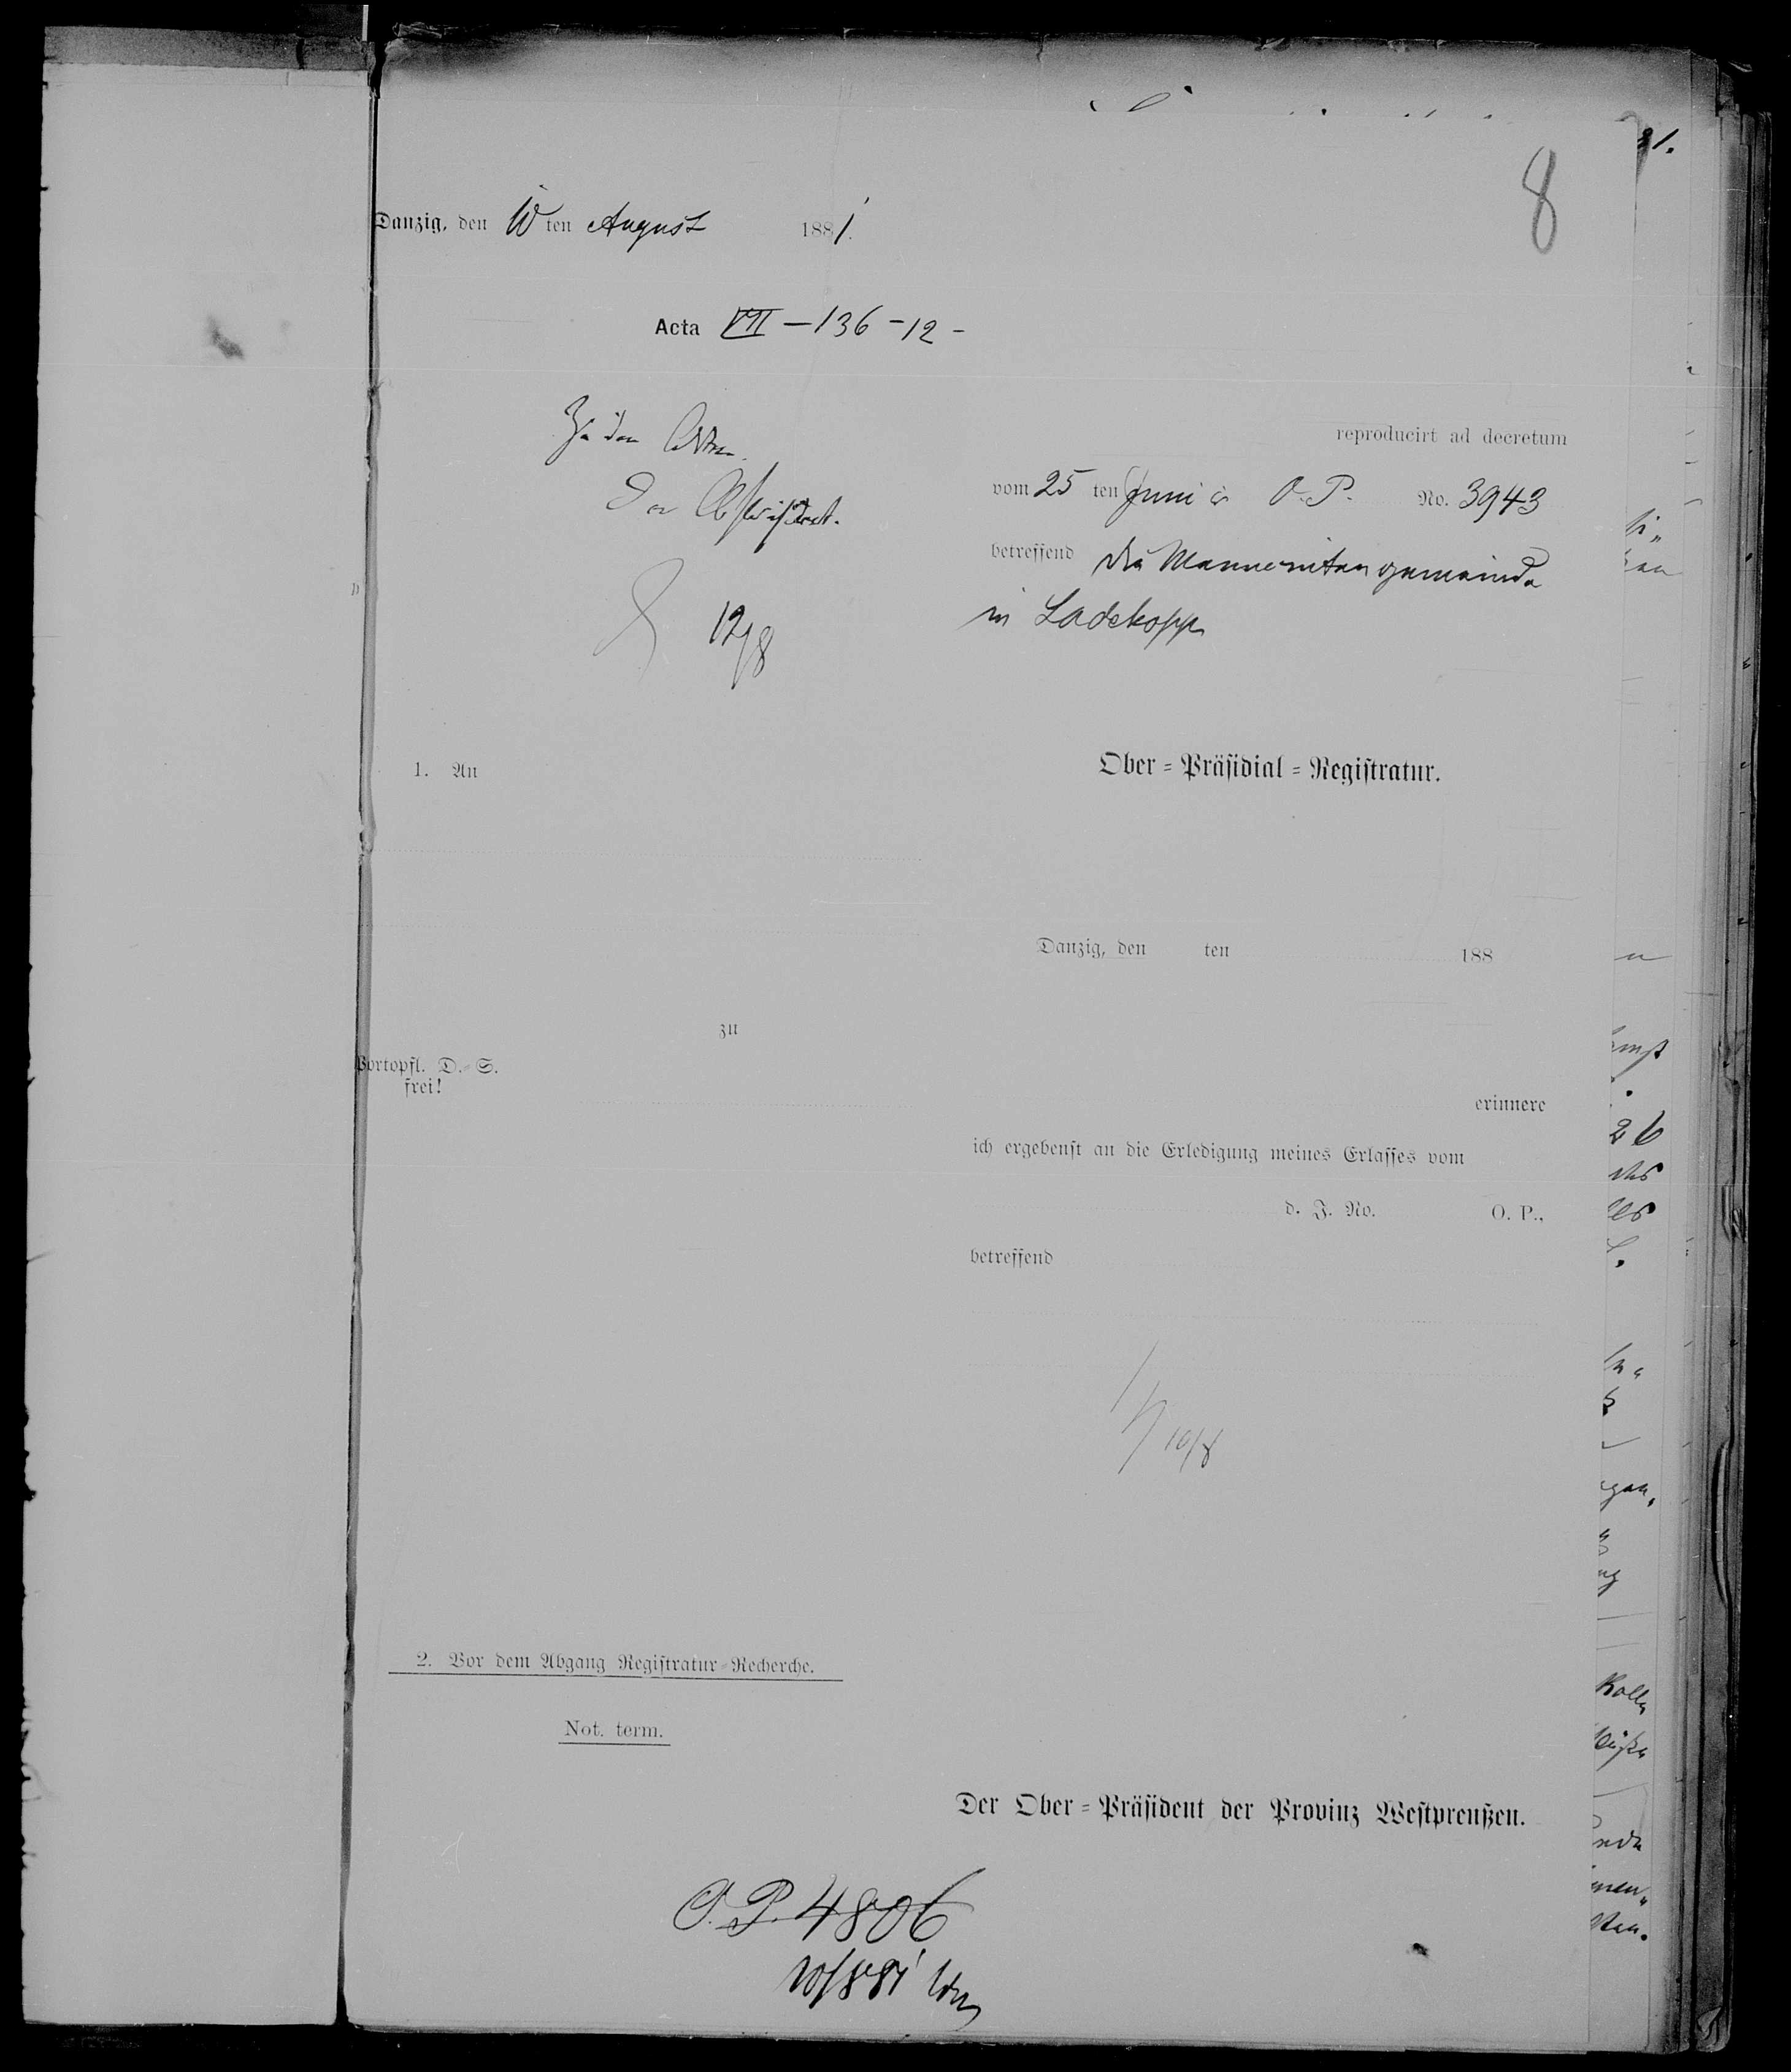 8
Danzig, den 10 ten August 1881.
Acta VII — 136 - 12 -
Zu den Akten.
Der Ober-Präsident.
12/8
reproducirt ad decretum
vom 25 ten Juni cr O. P. No. 3943
betreffend die Mennonitengemeinde
in Ladekopp
1. An
Ober-Präsidial-Registratur.
Danzig, den ten 188
zu
Portopfl. D.-S.
frei!
erinnere
ich ergebenst an die Erledigung meines Erlasses vom
d. J. No. O. P.,
betreffend
10/8
2. Vor dem Abgang Registratur-Recherche.
Not. term.
Der Ober-Präsident der Provinz Westpreußen.
O. P. 4806
10/8 81